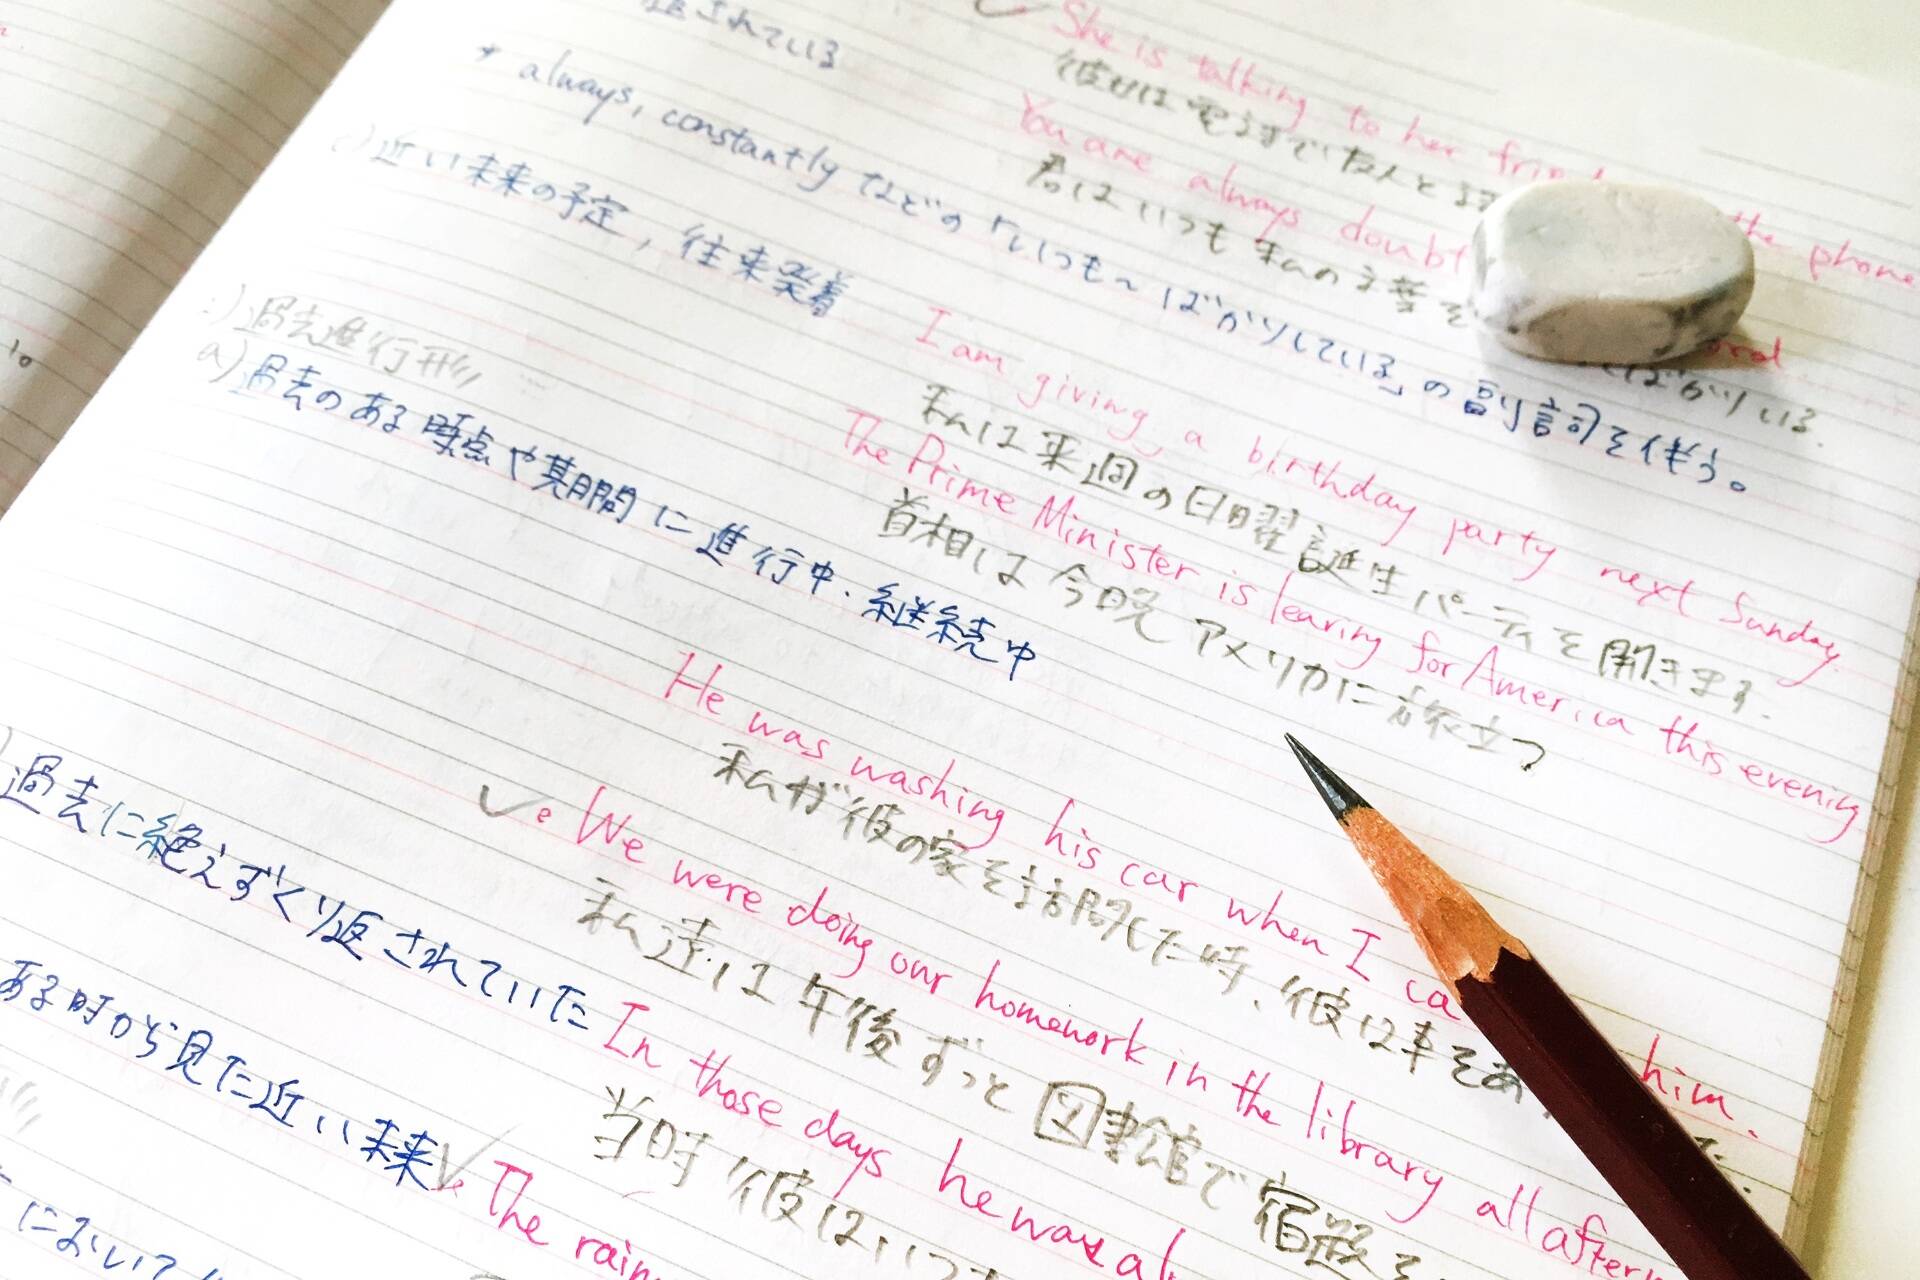 返されている
She is talking to her the phone
彼女は電話で友人と
* always, constantly などの「いつも～ばかりしている」の副詞を伴う。
You are always doubt
君はいつも私の言葉を ばかりいる.
c) 近い未来の予定, 往来発着
I am giving a birthday party next Sunday.
私は来週の日曜誕生パーティを開きます.
The Prime Minister is leaving for America this evening
首相は今晩アメリカに旅立つ
過去進行形
a) 過去のある時点や期間に進行中.継続中
He was washing his car when I him.
私が彼の家を訪問した時、彼は車を
We were doing our homework in the library all
私達は午後ずっと図書館で宿題を
過去に絶えずくり返されていた
In those days he was
当時彼はいつ
ある時から見た近い未来
The rain
において